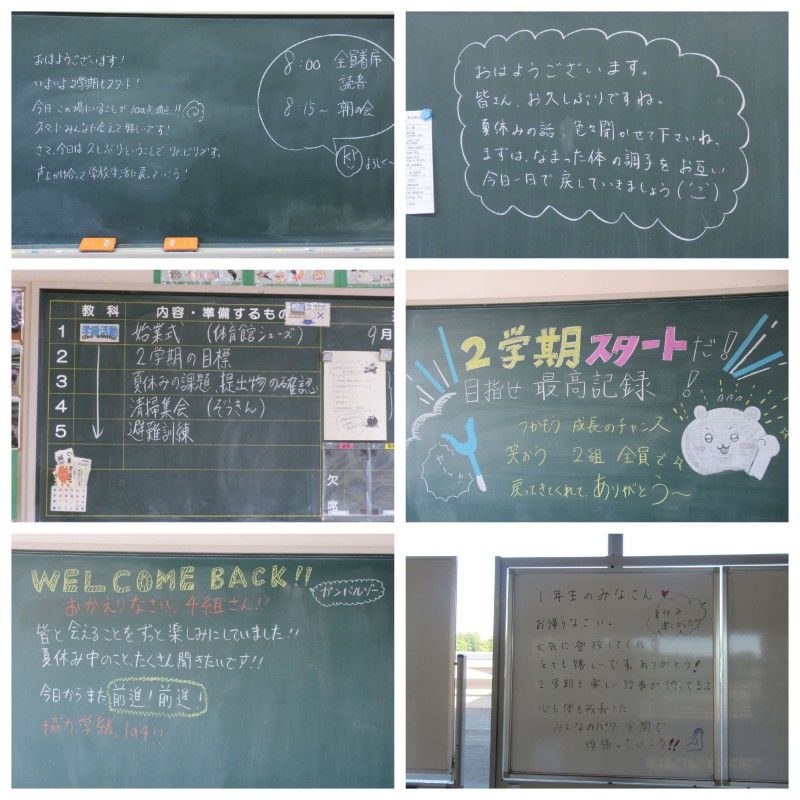 おはようございます!
いよいよ2学期もスタート!
今日 この場にいることで100点満点!!
久々にみんなに会えて嬉しいです!
さて、今日は久しぶりということで
声をかけ合って学校生活に戻していこう!
8:00 全員着席
読書
8:15~ 朝の会
おはようございます。
皆さん、お久しぶりですね。
夏休みの話、色々聞かせて下さいね。
まずは、なまった体の調子をお互い
今日一日で戻していきましょう
教科 内容・準備するもの
1 学級活動 始業式 (体育館シューズ)
2 2学期の目標
3 夏休みの課題、提出物の確認
4 清掃集会 (ぞうきん)
5 避難訓練
9月
欠席
2学期スタートだ!
目指せ 最高記録!
つかもう 成長のチャンス
笑おう 2組 全員で
戻ってきてくれて ありがとう~
WELCOME BACK!!
おかえりなさい、4組さん!!
ガンバルゾー
皆と会えることをずっと楽しみにしていました!!
夏休み中のこと、たくさん聞きたいです!!
今日からまた 前進!前進!
協力学級、1の4!!
1年生のみなさん♥
お帰りなさい。
夏休み
楽しめました?
元気に登校してくれて
とても嬉しいです。ありがとう!!
2学期も楽しい行事が待ってるよ
心も体も成長した
みんなのパワー全開で
頑張っていこう!!